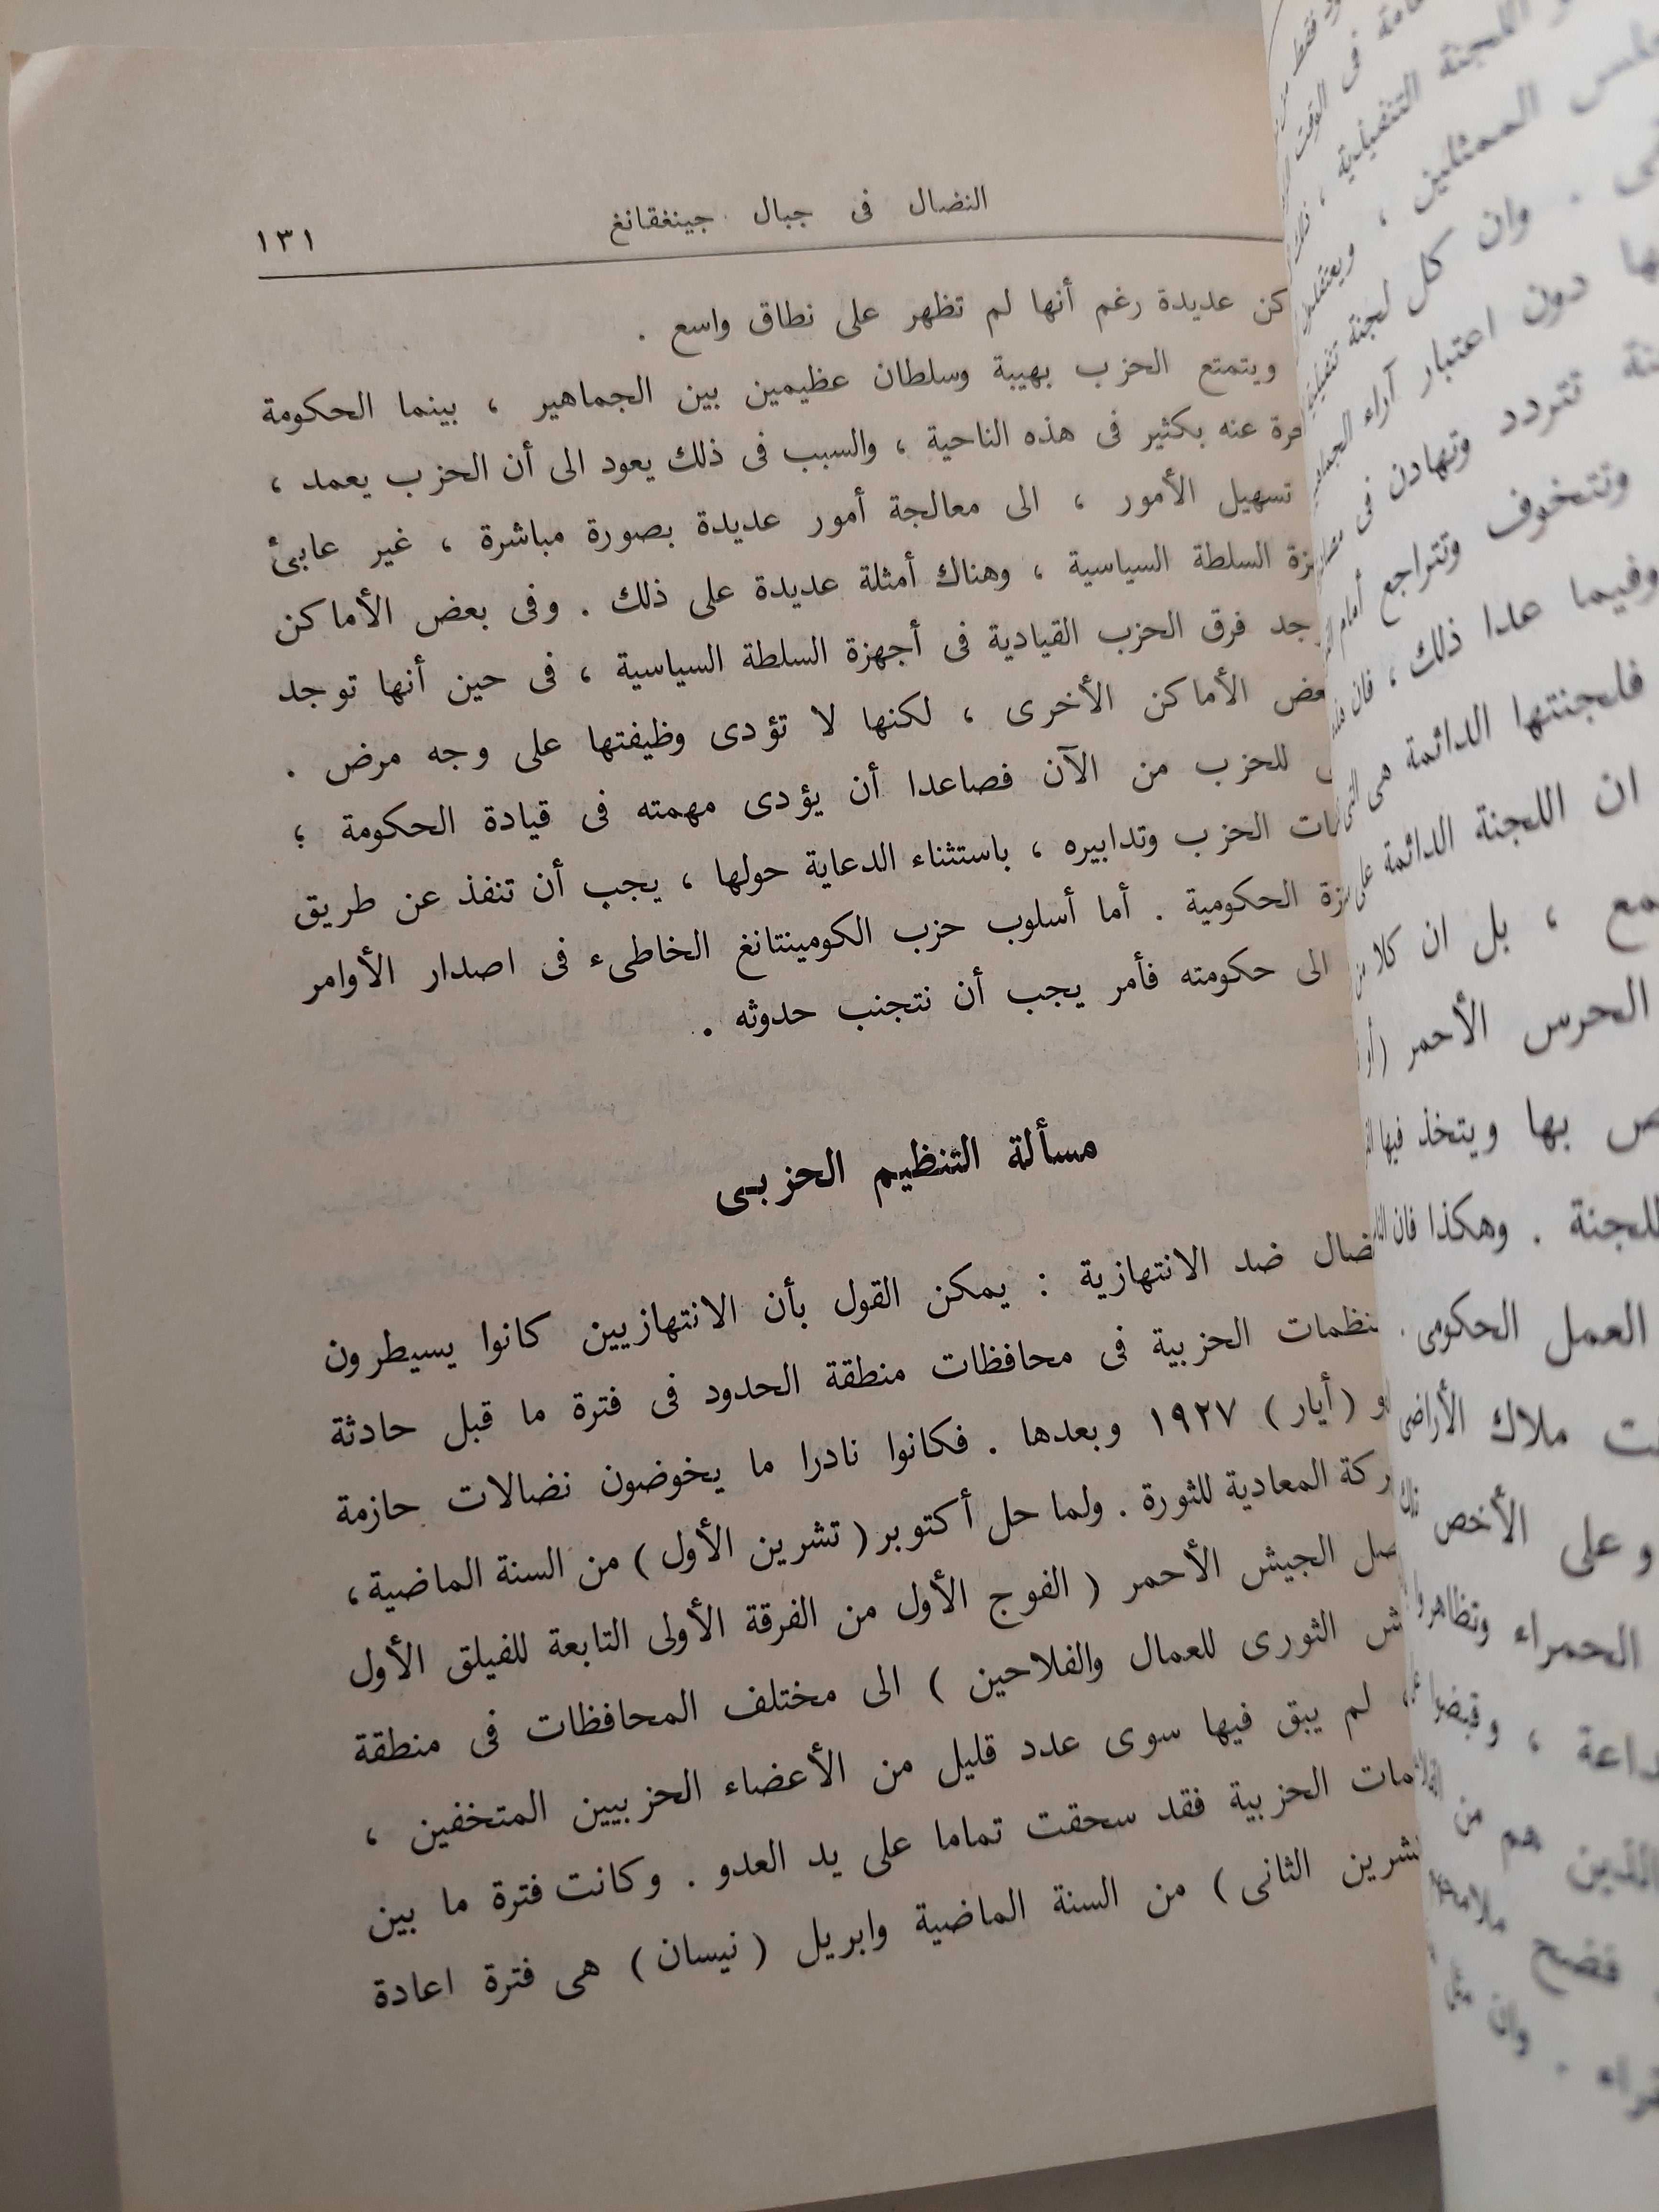 النضال فى جبال جينغقانغ ١٣١
عديدة رغم أنها لم تظهر على نطاق واسع .
ويتمتع الحزب بهيبة وسلطان عظيمين بين الجماهير ، بينما الحكومة
عنه بكثير فى هذه الناحية ، والسبب فى ذلك يعود الى أن الحزب يعمد ،
تسهيل الأمور ، الى معالجة أمور عديدة بصورة مباشرة ، غير عابئ
السلطة السياسية ، وهناك أمثلة عديدة على ذلك . وفى بعض الأماكن
فرق الحزب القيادية فى أجهزة السلطة السياسية ، فى حين أنها توجد
الأماكن الأخرى ، لكنها لا تؤدى وظيفتها على وجه مرض .
للحزب من الآن فصاعدا أن يؤدى مهمته فى قيادة الحكومة ؛
الحزب وتدابيره ، باستثناء الدعاية حولها ، يجب أن تنفذ عن طريق
الحكومية . أما أسلوب حزب الكومينتانغ الخاطىء فى اصدار الأوامر
الى حكومته فأمر يجب أن نتجنب حدوثه .
مسألة التنظيم الحزبى
ضد الانتهازية : يمكن القول بأن الانتهازيين كانوا يسيطرون
الحزبية فى محافظات منطقة الحدود فى فترة ما قبل حادثة
( أيار ) ١٩٢٧ وبعدها . فكانوا نادرا ما يخوضون نضالات حازمة
المعادية للثورة . ولما حل أكتوبر ( تشرين الأول ) من السنة الماضية ،
الجيش الأحمر ( الفوج الأول من الفرقة الأولى التابعة للفيلق الأول
الثورى للعمال والفلاحين ) الى مختلف المحافظات فى منطقة
لم يبق فيها سوى عدد قليل من الأعضاء الحزبيين المتخفين ،
الحزبية فقد سحقت تماما على يد العدو . وكانت فترة ما بين
الثانى ) من السنة الماضية وابريل ( نيسان ) هى فترة اعادة
اللجنة التنفيذية ،
الممثلين ،
. وان كل لجنة
دون اعتبار آراء
تتردد وتهادن فى
وتتخوف وتتراجع أمام
وفيما عدا ذلك ، فان
فلجنتها الدائمة هى
ان اللجنة الدائمة
، بل ان كلا من
الحرس الأحمر
بها ويتخذ فيها
. وهكذا فان
العمل الحكومى .
ملاك الأراضى
وعلى الأخص
الحمراء وتظاهروا
هم من
فضح
وان